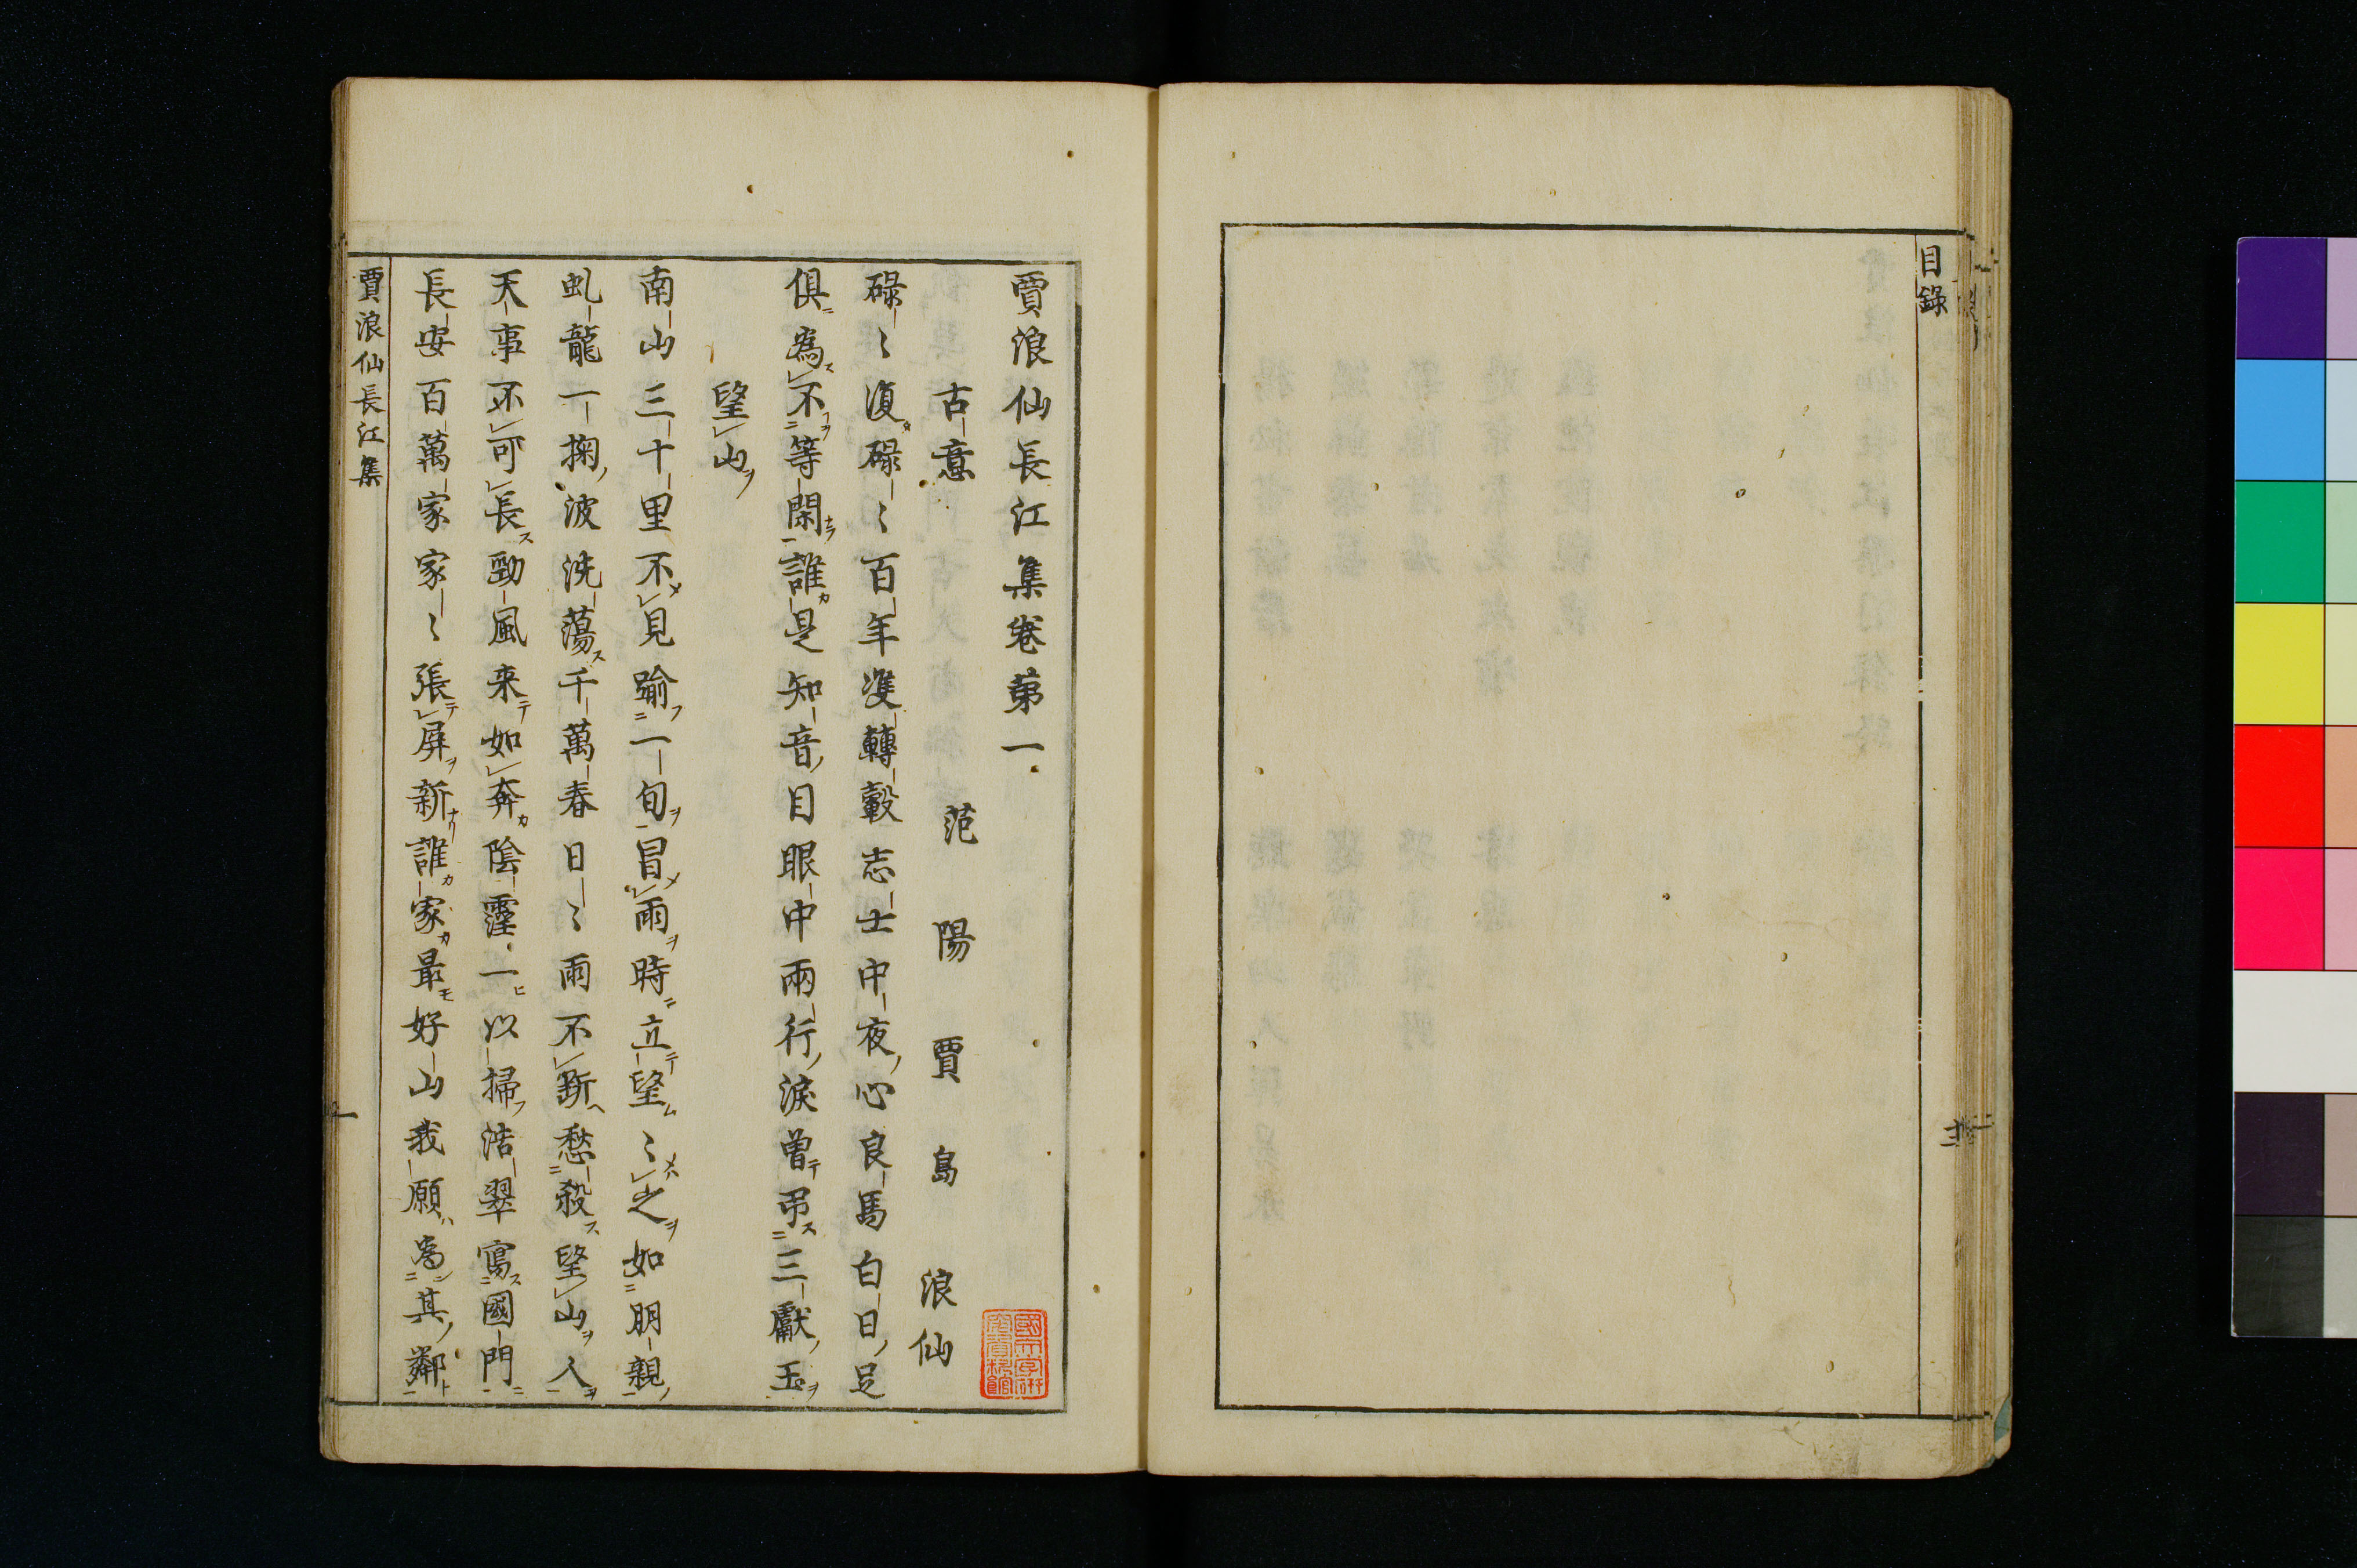 目錄
賈浪仙長江集卷第一
古意
范陽賈島浪仙
碌〻復碌〻百年雙轉轂志士中夜心良馬白日足
俱為不等閑誰是知音目眼中兩行淚曽弔三獻玉
望山
南山三十里不見踰一旬冒雨時立望〻之如朋親
虬龍一掬波洗蕩千萬春日〻雨不斷愁殺望山人
天事不可長勁風来如奔陰霪一以掃浩翠寫國門
長安百萬家家〻張屏新誰家最好山我願為其鄰
賈浪仙長江集
一